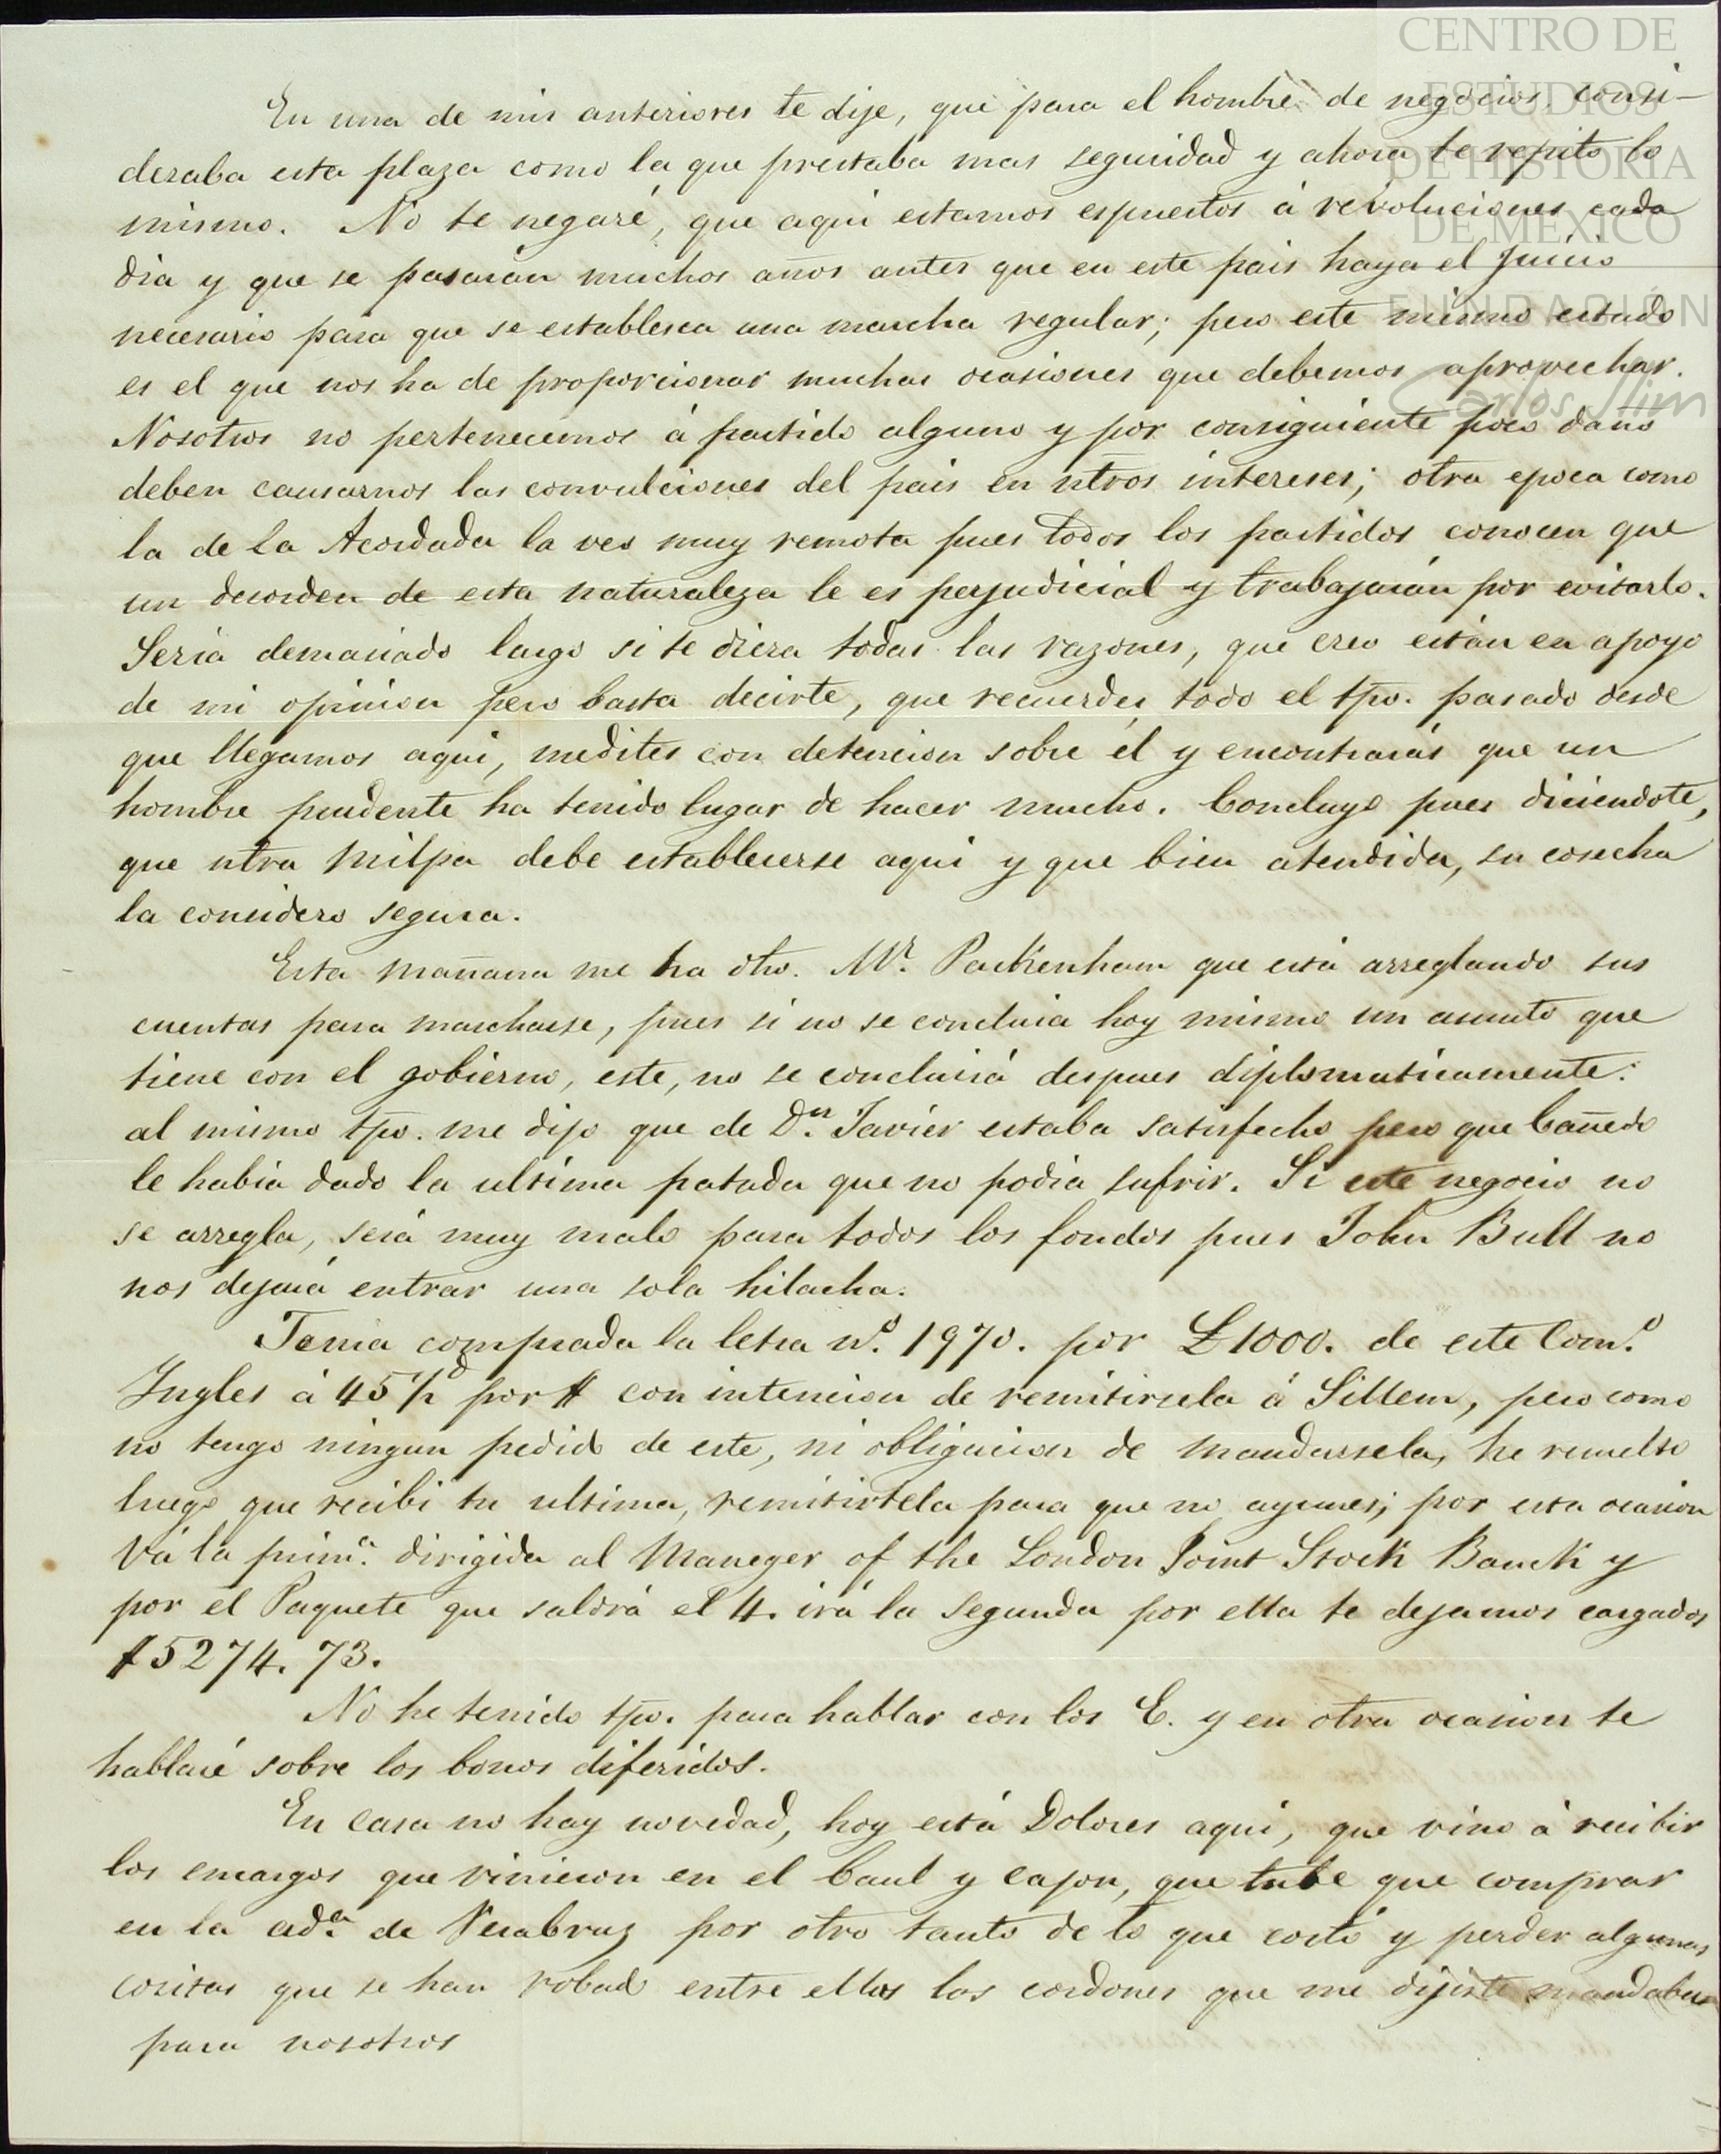 CENTRO DE
ESTUDIOS
DE HISTORIA
DE MÉXICO
FUNDACIÓN
Carlos Slim
En una de mis anteriores te dije, que para el hombre de negocios, consi-
deraba esta plaza como la que prestaba mas seguridad y ahora te repito lo
mismo. No te negaré, que aqui estamos espuestos á revoluciones cada
dia y que se pasarán muchos años antes que en este pais haya el juicio
necesario para que se establesca una marcha regular; pero este mismo estado
es el que nos ha de proporcionar muchas ocasiones que debemos aprovechar.
Nosotros no pertenecemos á partido alguno y por consiguiente poco daño
deben causarnos las convulciones del pais en ntros intereses; otra epoca como
la de la Acordada la veo muy remota pues todos los partidos conocen que
un desorden de esta naturaleza le es perjudicial y trabajarán por evitarlo.
Seria demasiado largo si te diera todas las razones, que creo están en apoyo
de mi opinion pero basta decirte, que recuerdes todo el tpo. pasado desde
que llegamos aqui, medites con detencion sobre él y encontrarás que un
hombre prudente ha tenido lugar de hacer mucho. Concluyo pues diciendote,
que ntra milpa debe establecerse aqui y que bien atendida, su cosecha
la considero segura.
Esta mañana me ha dho. Mr. Packenham que está arreglando sus
cuentas para marcharse, pues si no se concluia hoy mismo un asunto que
tiene con el gobierno, este, no se concluirá despues diplomaticamente:
al mismo tpo. me dijo que de Dn. Javier estaba satisfecho pero que Cañedo
le habia dado la ultima patada que no podia sufrir. Si este negocio no
se arregla, será muy malo para todos los fondos pues John Bull no
nos dejará entrar una sola hilacha.
Tenia comprada la letra no. 1970. por £1000. de este Como.
Ingles á 45½d por $ con intencion de remitirsela á Sillem, pero como
no tengo ningun pedido de este, ni obligacion de mandarsela, he resuelto
luego que recibi tu ultima, remitirtela para que no ayunes; por esta ocasion
vá la prima. dirigida al Maneger of the London Joint Stock Banck y
por el Paquete que saldrá el 4. irá la segunda por ella te dejamos cargados
$5274. 73.
No he tenido tpo. para hablar con los E. y en otra ocasion te
hablaré sobre los bonos diferidos.
En casa no hay novedad, hoy está Dolores aqui, que vino á recibir
los encargos que vinieron en el baul y cajon, que tube que comprar
en la ada. de Verabruz por otro tanto de lo que costó y perder algunas
cositas que se han robado entre ellas los cordones que me dijiste mandabas
para nosotros